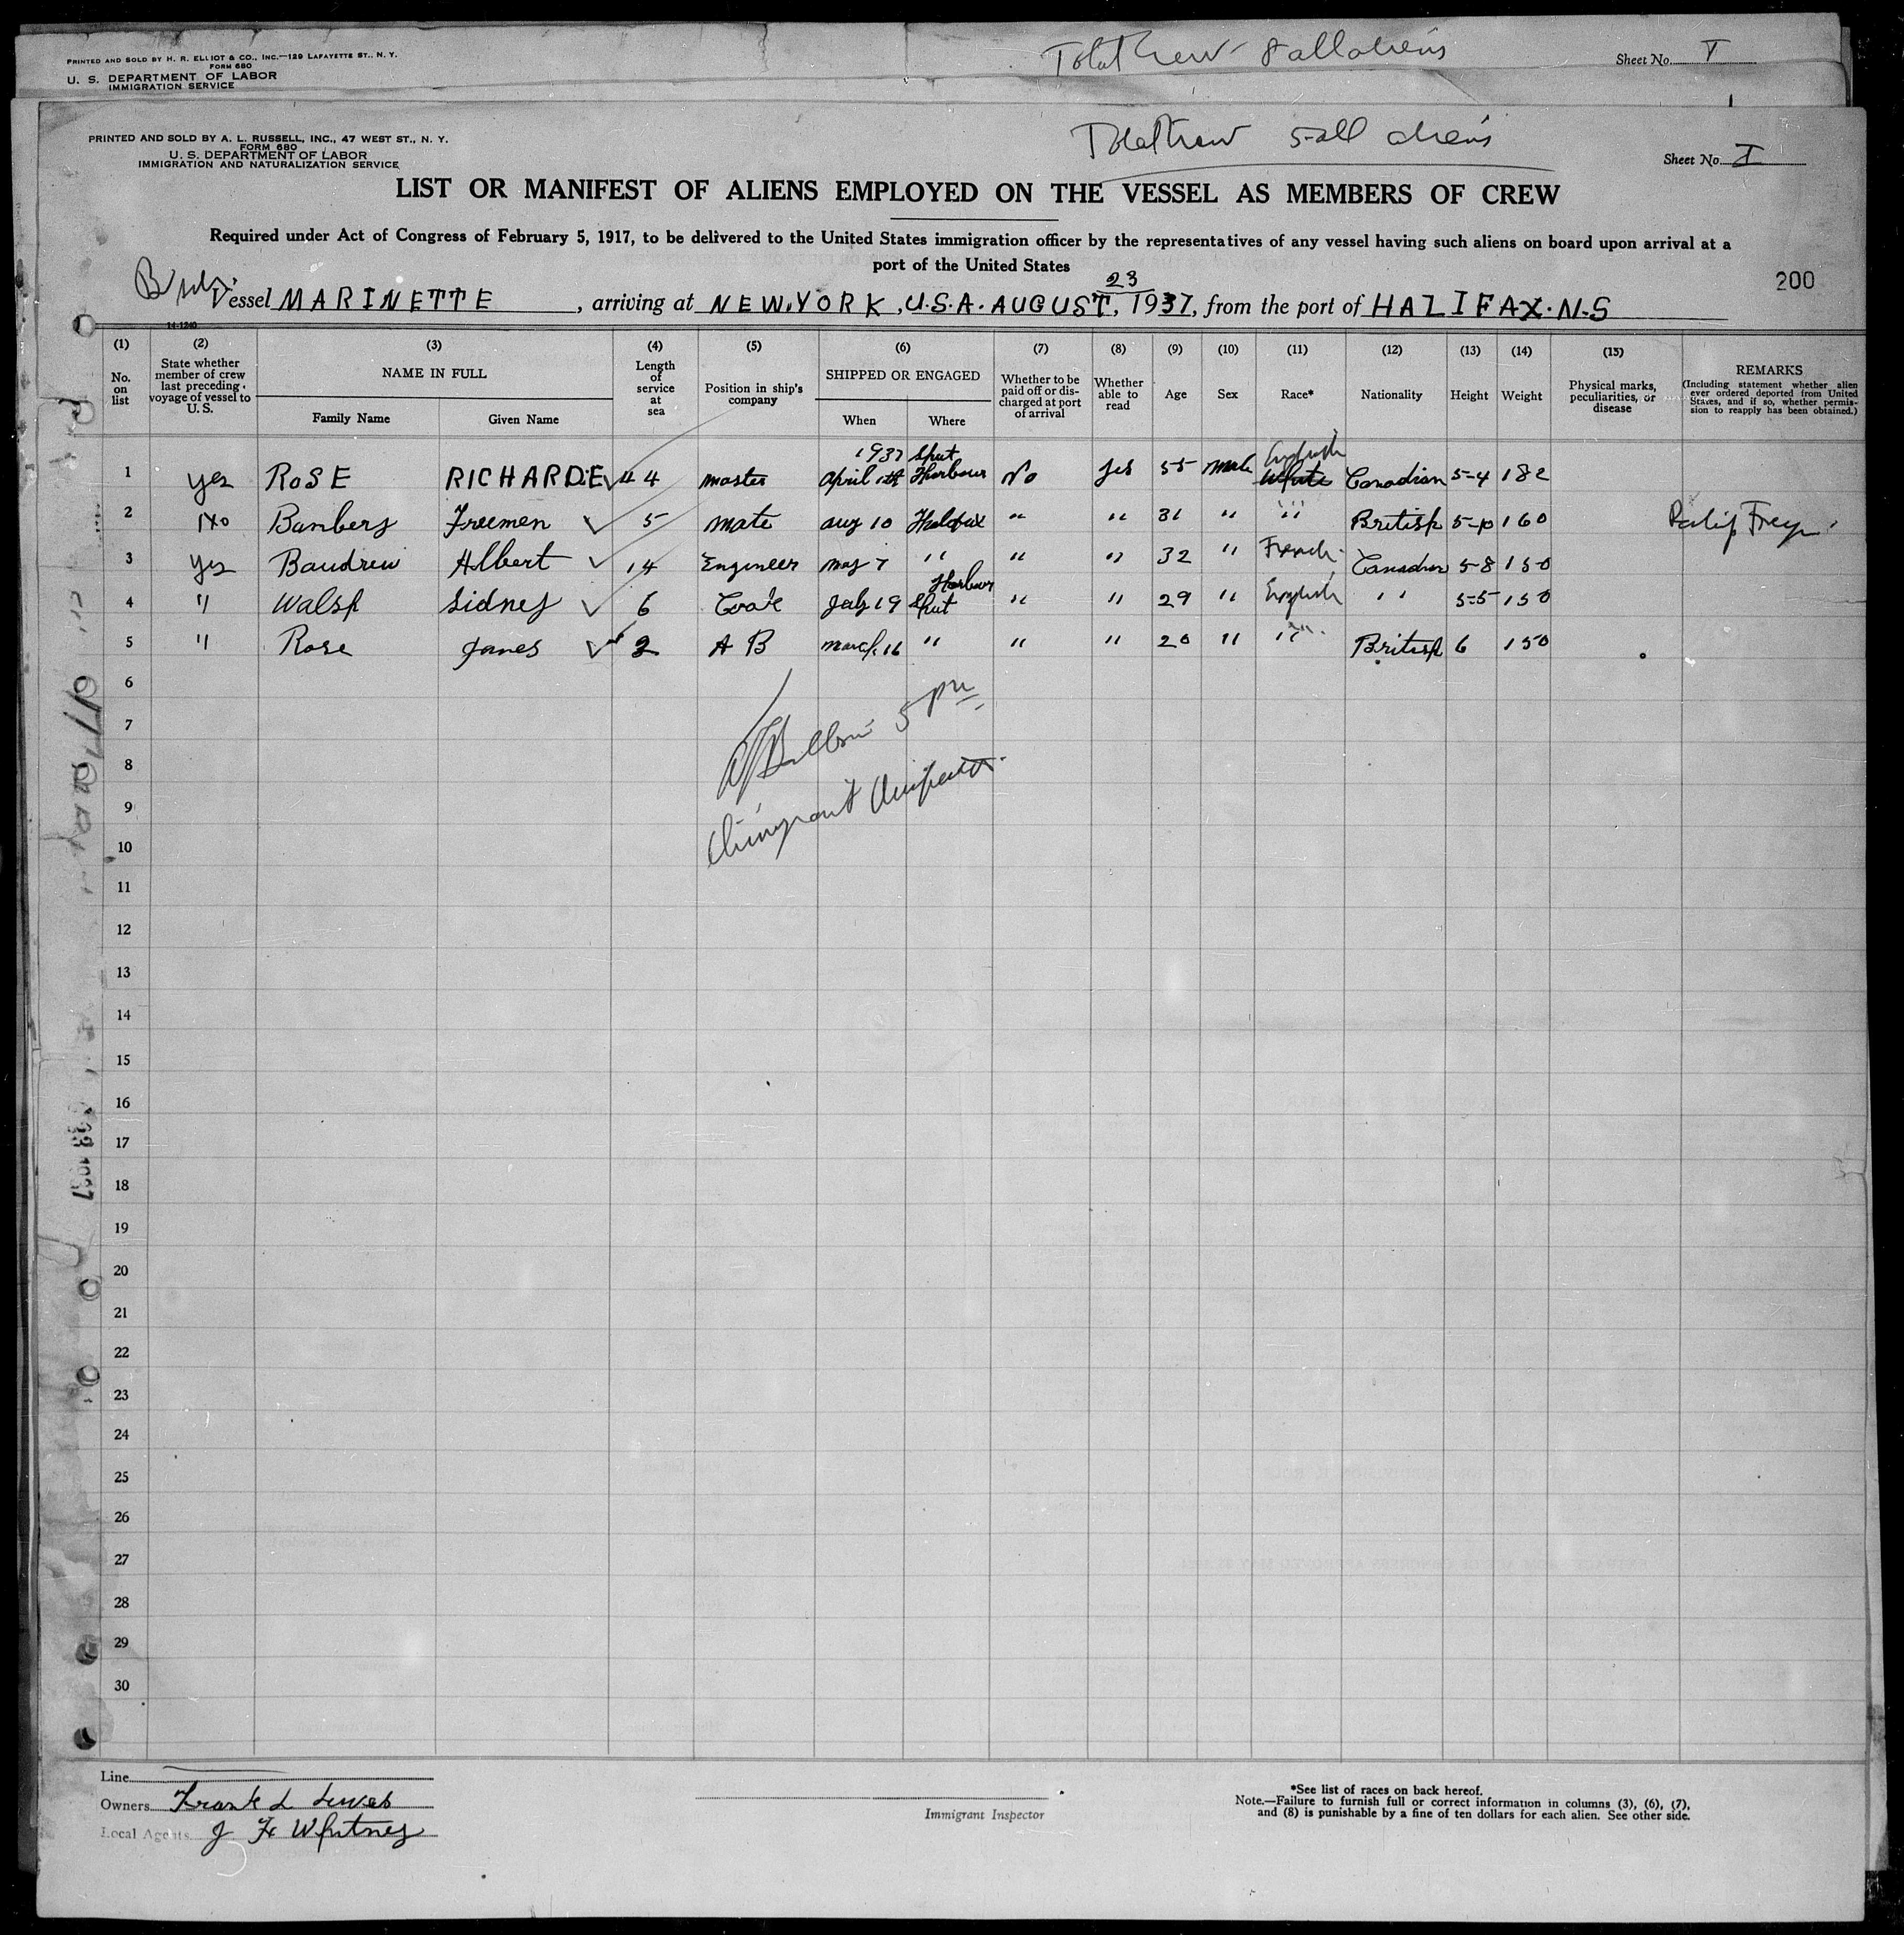 PRINTED AND SOLD BY H. R. ELLIOT & CO., INC.—129 LAFAYETTE ST., N. Y.
FORM 680
U. S. DEPARTMENT OF LABOR
IMMIGRATION SERVICE
Total Crew 8 all aliens
Sheet No. I
PRINTED AND SOLD BY A. L. RUSSELL, INC., 47 WEST ST., N. Y.
FORM 680
U. S. DEPARTMENT OF LABOR
IMMIGRATION AND NATURALIZATION SERVICE
Total Crew 5 all aliens
Sheet No. I
LIST OR MANIFEST OF ALIENS EMPLOYED ON THE VESSEL AS MEMBERS OF CREW
Required under Act of Congress of February 5, 1917, to be delivered to the United States immigration officer by the representatives of any vessel having such aliens on board upon arrival at a
port of the United States
200
Vessel MARINETTE, arriving at NEW.YORK, U.S.A. AUGUST 23, 1937, from the port of HALIFAX. N.S
14-1240
(1) (2) (3) (4) (5) (6) (7) (8) (9) (10) (11) (12) (13) (14) (15)
No. on list
State whether member of crew last preceding voyage of vessel to U. S.
NAME IN FULL
Family Name
Given Name
Length of service at sea
Position in ship's company
SHIPPED OR ENGAGED
When
Where
Whether to be paid off or discharged at port of arrival
Whether able to read
Age
Sex
Race*
Nationality
Height
Weight
Physical marks, peculiarities, or disease
REMARKS
(Including statement whether alien ever ordered deported from United States, and if so, whether permission to reapply has been obtained.)
1 yes ROSE RICHARD.E 44 master 1937 April Harbour No yes 55 male English White Canadian 5-4 182
2 No Bambery Freemen 5 mate aug 10 Halifax " " 31 " " British 5-10 160
3 yes Baudrew Albert 14 Engineer may 7 " " " 32 " French Canadian 5-8 150
4 " Walsh Sidney 6 Cook July 19 Harbour " " 29 " English " 5-5 150
5 " Rose James 2 A B march 16 " " " 20 " " British 6 150
6
7
8
9
10
5 pm
Immigrant Inspector
11
12
13
14
15
16
17
18
19
20
21
22
23
24
25
26
27
28
29
30
Line
Owners Frank L
Local Agents J F Whitney
Immigrant Inspector
*See list of races on back hereof.
Note.—Failure to furnish full or correct information in columns (3), (6), (7),
and (8) is punishable by a fine of ten dollars for each alien. See other side.